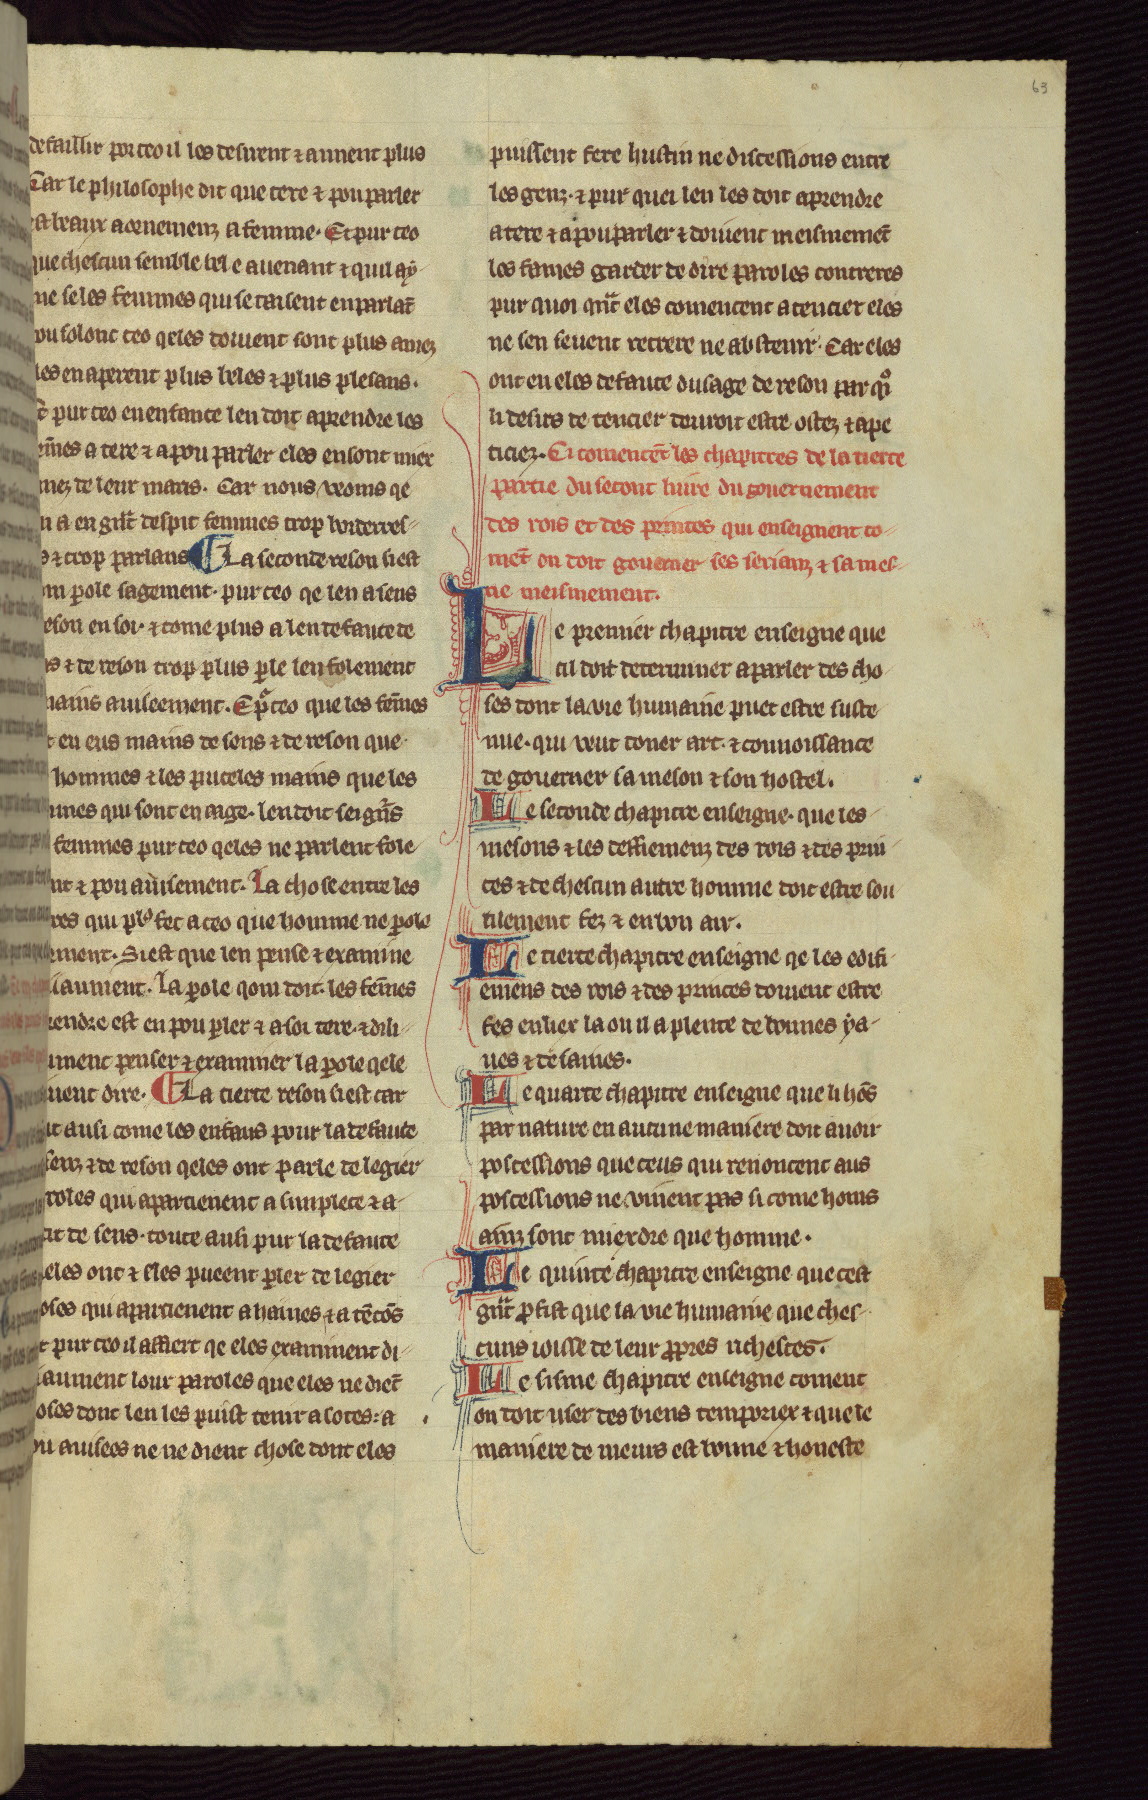 63
defaillir por ceo il les desirent ⁊ aiment plus
Car le philosophe dit que tere ⁊ pou parler
est beaux aornemenz a femme. Et pur ceo
que chescun semble bel e auenant ⁊ quil ay
me se les femmes qui se taisent en parlāt
ou solonc ceo qeles doiuent sont plus amez
les en aperent plus beles ⁊ plus plesans.
pur ceo en enfance len doit aprendre les
fēmes a tere ⁊ a pou parler eles en sont mier
mez de leur maris. Car nous veoms qe
n a en grāt despit femmes trop borderres-
⁊ trop parlans ¶ La seconde reson si est
om ꝑole sagement. pur ceo qe len a sens
eson en soi. ⁊ come plus a len defaute de
s ⁊ de reson trop plus ꝑle len folement
mains auiseement. E pᵃ ceo que les fēmes
t en eus mains de sens ⁊ de reson que
hommes ⁊ les puceles mains que les
mmes qui sont en aage. len doit seigñs
femmes pur ceo qeles ne parlent fole-
nt ⁊ pou auisement. La chose entre les
res qui plꝰ fet a ceo que homme ne ꝑole
ement. Si est que len pense ⁊ examine
iaument. La ꝑole qom doit. les fēmes
rendre est en pou ꝑler ⁊ a soi tere. ⁊ dili-
ument penser ⁊ examiner la ꝑole qele
uent dire. ¶ La tierce reson si est car
ut ausi come les enfans pour la defaute
senz ⁊ de reson qeles ont parle de legier
roles qui apartienent a simplece ⁊ a-
ut de sens. tout ausi pur la defaute
eles ont ⁊ eles pueent ꝑler de legier
oles qui apartienent a haines ⁊ a tēcōs
t pur ceo il affiert qe eles examinent di-
iaument lour paroles que eles ne diēt
oses dont len les puist tenir a sotes: a
ou auisees ne ne dient chose dont eles
puissent fere hustin ne discessions entre
les genz. ⁊ pur quei len les doit aprendre
a tere ⁊ a pou parler ⁊ doiuent meismemēt
les fames garder de dire paroles contreres
pur quoi qnt̄ eles comencent a tencier eles
ne sen seuent retrere ne abstenir. Car eles
ont en eles defaute dusage de reson par qͦi
li desirs de tencier deuroit estre ostez ⁊ ape
ticiez. Ci comencēt les chapitres de la tierce
partie du secont liure du gouernement
des rois et des princes qui enseignent co-
mēt on doit gouerner ses serianz ⁊ sa mes-
nie meismement.
Le premier chapitre enseigne que
cil doit determiner a parler des cho-
ses dont la vie humaine puet estre suste
nue. qui veut doner art. ⁊ connoissance
de gouerner sa meson ⁊ son hostel.
Le seconde chapitre enseigne. que les-
mesons ⁊ les deffiemenz des rois ⁊ des prin
ces ⁊ de chescun autre homme doit estre sou
tilement fez ⁊ en bon air.
Le tierce chapitre enseigne qe les edifi-
emens des rois ⁊ des princes doiuent estre
fes en lier la ou il a plente de bonnes ya-
ues ⁊ de saines.
Le quarte chapitre enseigne que li hōs
par nature en aucune maniere doit auoir
poscessions que ceus qui renoncent aus
poscessions ne viuent pas si come homs
ainz sont mierdre que homme.
Le quinte chapitre enseigne que cest
grāt ꝓfist que la vie humaine que ches-
cuns ioisse de leur ꝓpres richesces.
Le sisme chapitre enseigne coment
on doit user des biens temporiex ⁊ que le
maniere de meurs est bonne ⁊ honeste